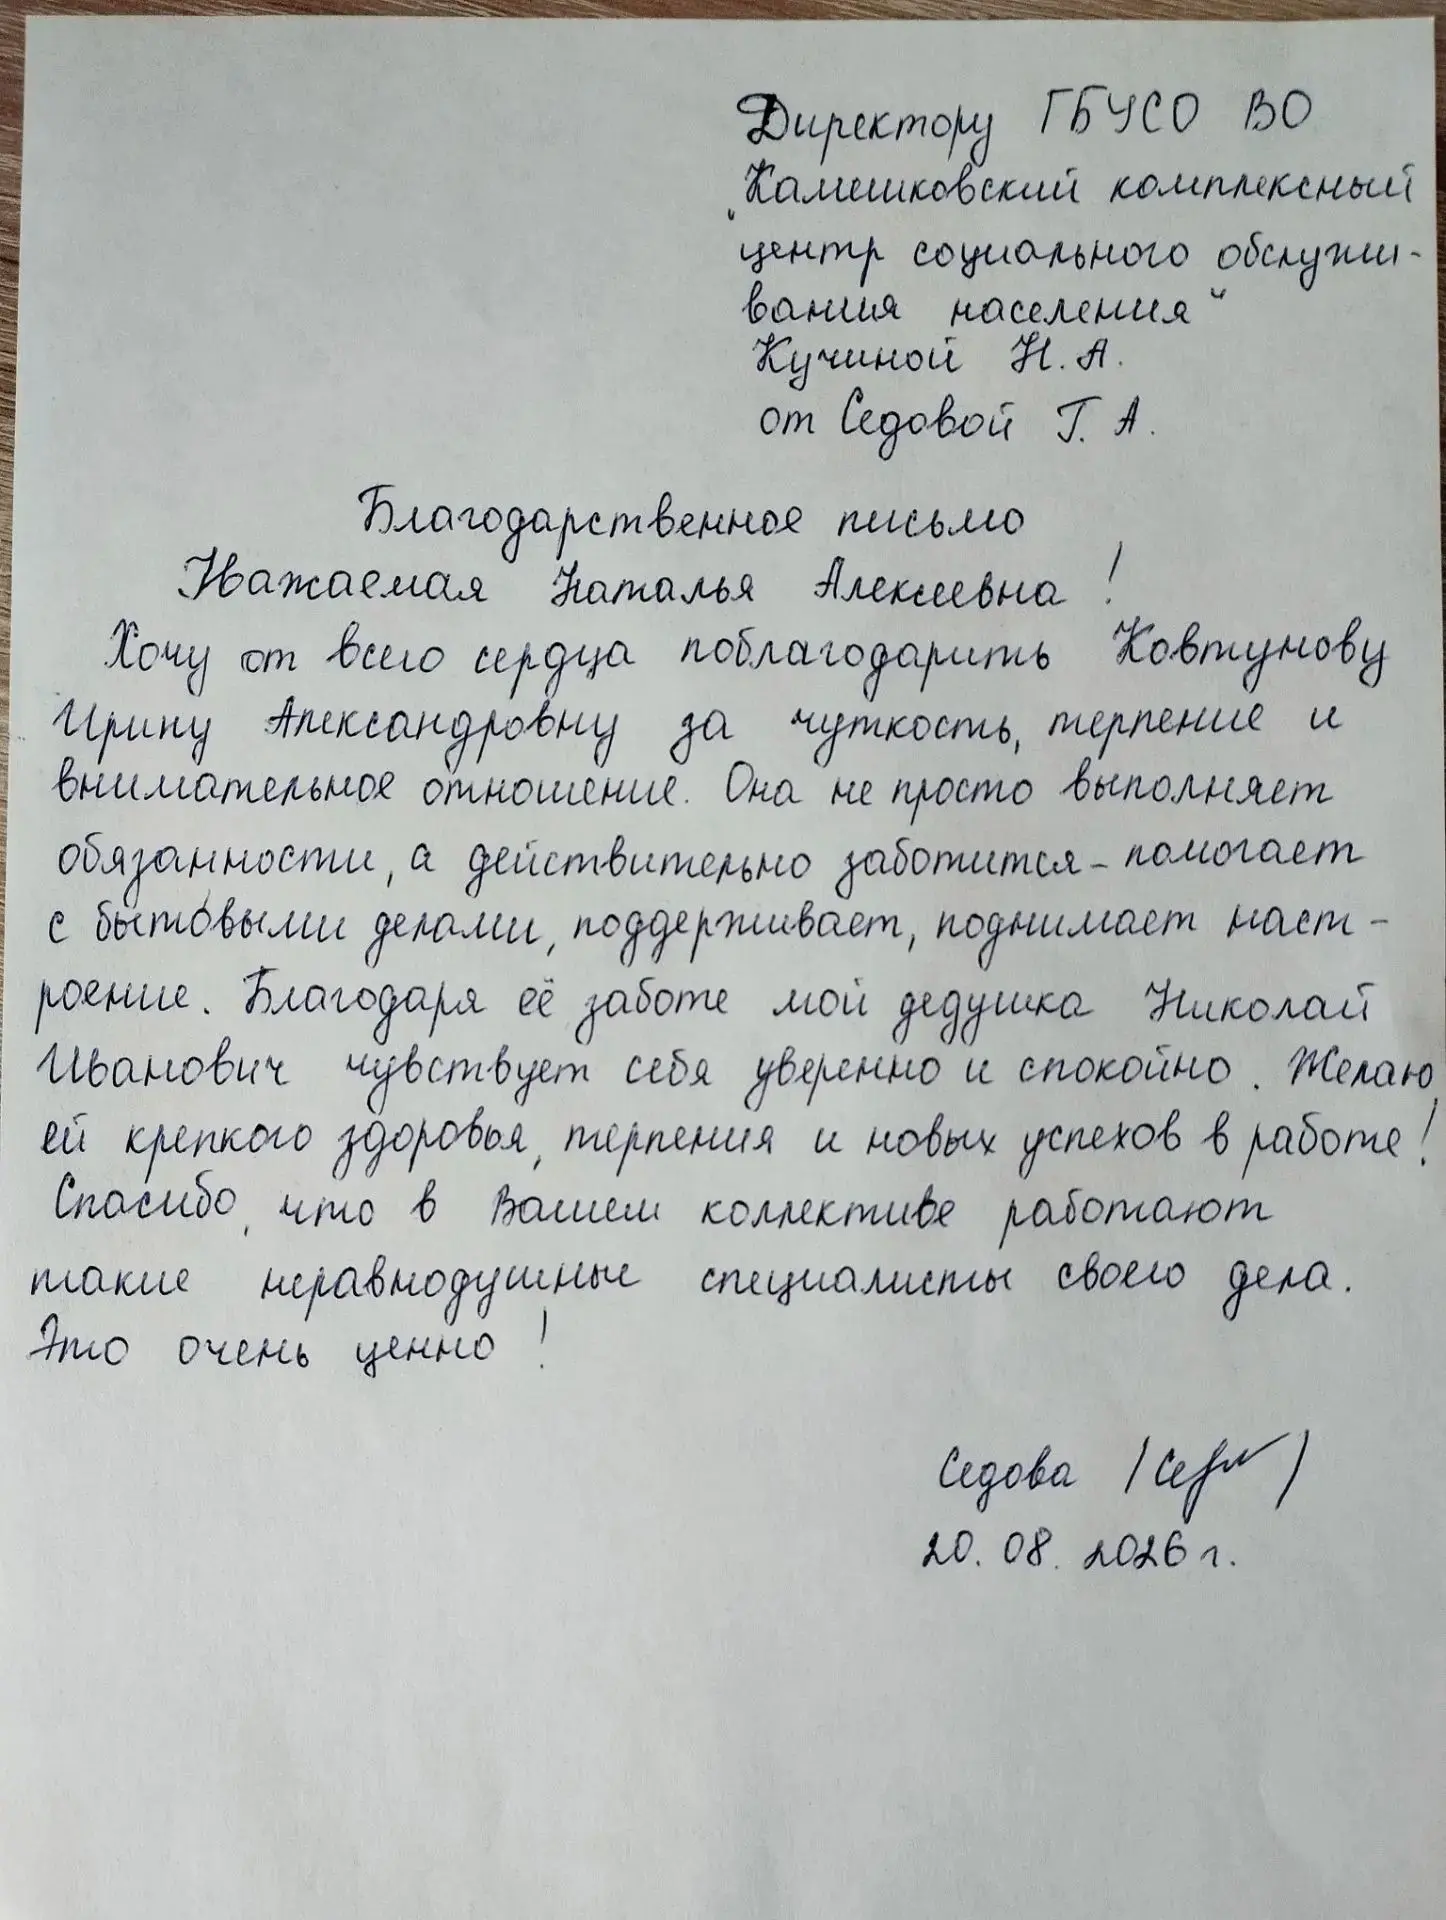 Директору ГБУСО ВО
„Камешковский комплексный
центр социального обслужи-
вания населения“
Кучиной Н. А.
от Седовой Г. А.
Благодарственное письмо
Уважаемая Наталья Алексеевна!
Хочу от всего сердца поблагодарить Ковтунову
Ирину Александровну за чуткость, терпение и
внимательное отношение. Она не просто выполняет
обязанности, а действительно заботится - помогает
с бытовыми делами, поддерживает, поднимает наст-
роение. Благодаря её заботе мой дедушка Николай
Иванович чувствует себя уверенно и спокойно. Желаю
ей крепкого здоровья, терпения и новых успехов в работе!
Спасибо, что в Вашем коллективе работают
такие неравнодушные специалисты своего дела.
Это очень ценно!
Седова
20.08.2026 г.